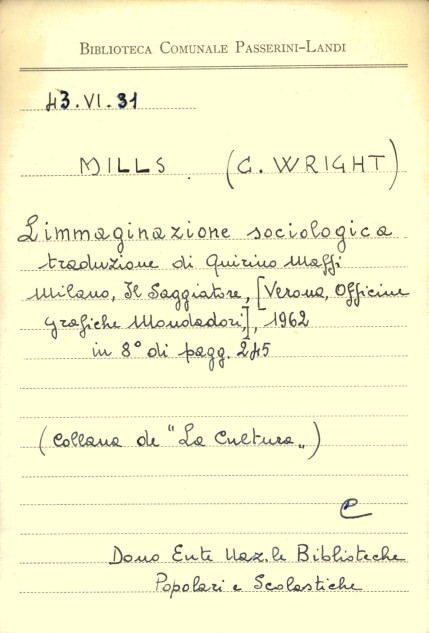 BIBLIOTECA COMUNALE PASSERINI-LANDI
43.VI.31
MILLS. (C. WRIGHT)
L'immaginazione sociologica
traduzione di Quirino Maffi
Milano, Il Saggiatore, [Verona, Officine
grafiche Mondadori], 1962
in 8° di pagg. 245
(Collana de "La Cultura„)
e
Dono Ente Naz.le Biblioteche
Popolari e Scolastiche